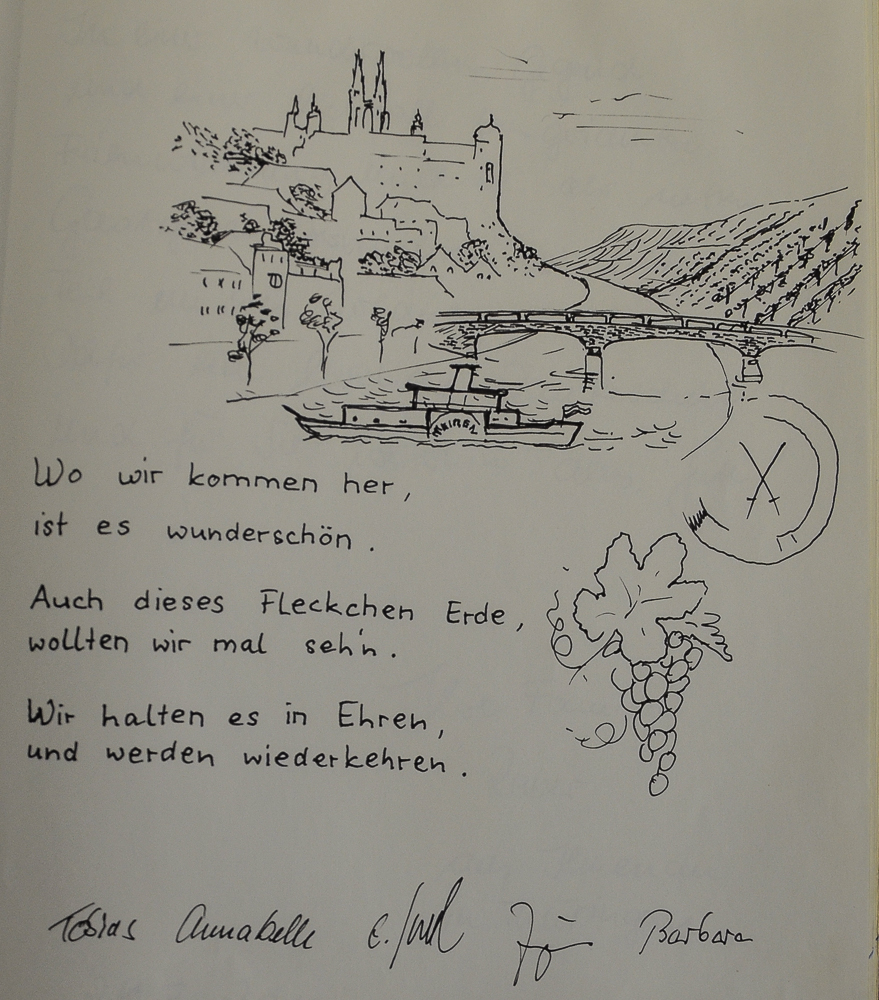 MEIßEN
Wo wir kommen her,
ist es wunderschön.
Auch dieses Fleckchen Erde,
wollten wir mal seh'n.
Wir halten es in Ehren,
und werden wiederkehren.
Tobias Annabelle Barbara